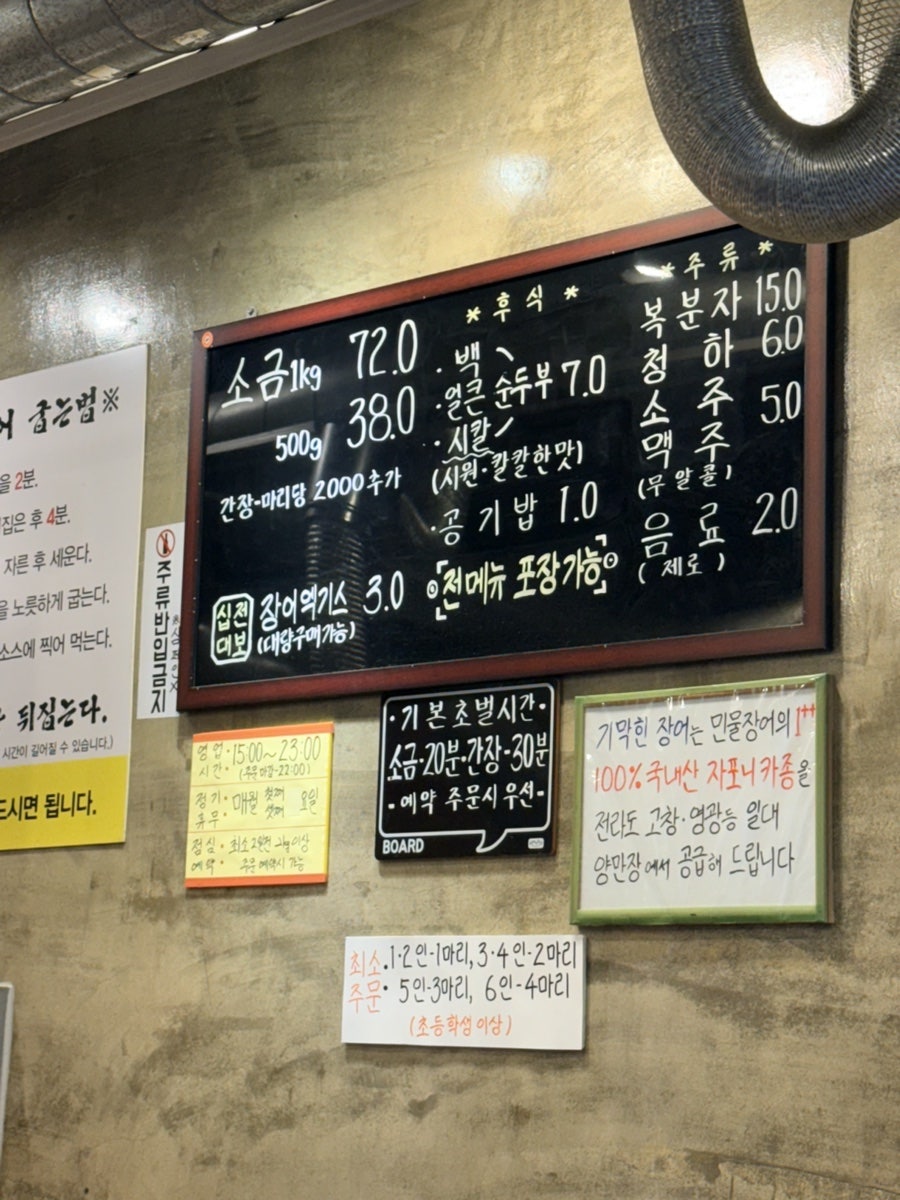 굽는법※
2분.
집은 후 4분.
자른 후 세운다.
노릇하게 굽는다.
소스에 찍어 먹는다.
뒤집는다.
시간이 길어질 수 있습니다.)
드시면 됩니다.
주류반입금지
소금1kg 72.0
500g 38.0
간장-마리당 2000추가
십전대보 장어엑기스 3.0
(대량구매가능)
* 후식 *
·백
·얼큰 순두부 7.0
·시칼
(시원·칼칼한맛)
·공기밥 1.0
전메뉴 포장가능
* 주류 *
복분자 15.0
청하 6.0
소주 5.0
맥주
(무알콜)
음료 2.0
(제로)
영업시간· 15:00~23:00
(주문마감-22:00)
정기휴무: 매월 첫째 셋째 요일
점심예약: 최소 2일전 2kg이상
주문 예약시 가능
·기본초벌시간·
소금-20분·간장-30분
·예약 주문시 우선·
BOARD
기막힌 장어는 민물장어의 1++
100% 국내산 자포니카종을
전라도 고창·영광등 일대
양만장에서 공급해 드립니다
최소주문: 1·2인-1마리, 3·4인-2마리
5인-3마리, 6인-4마리
(초등학생 이상)